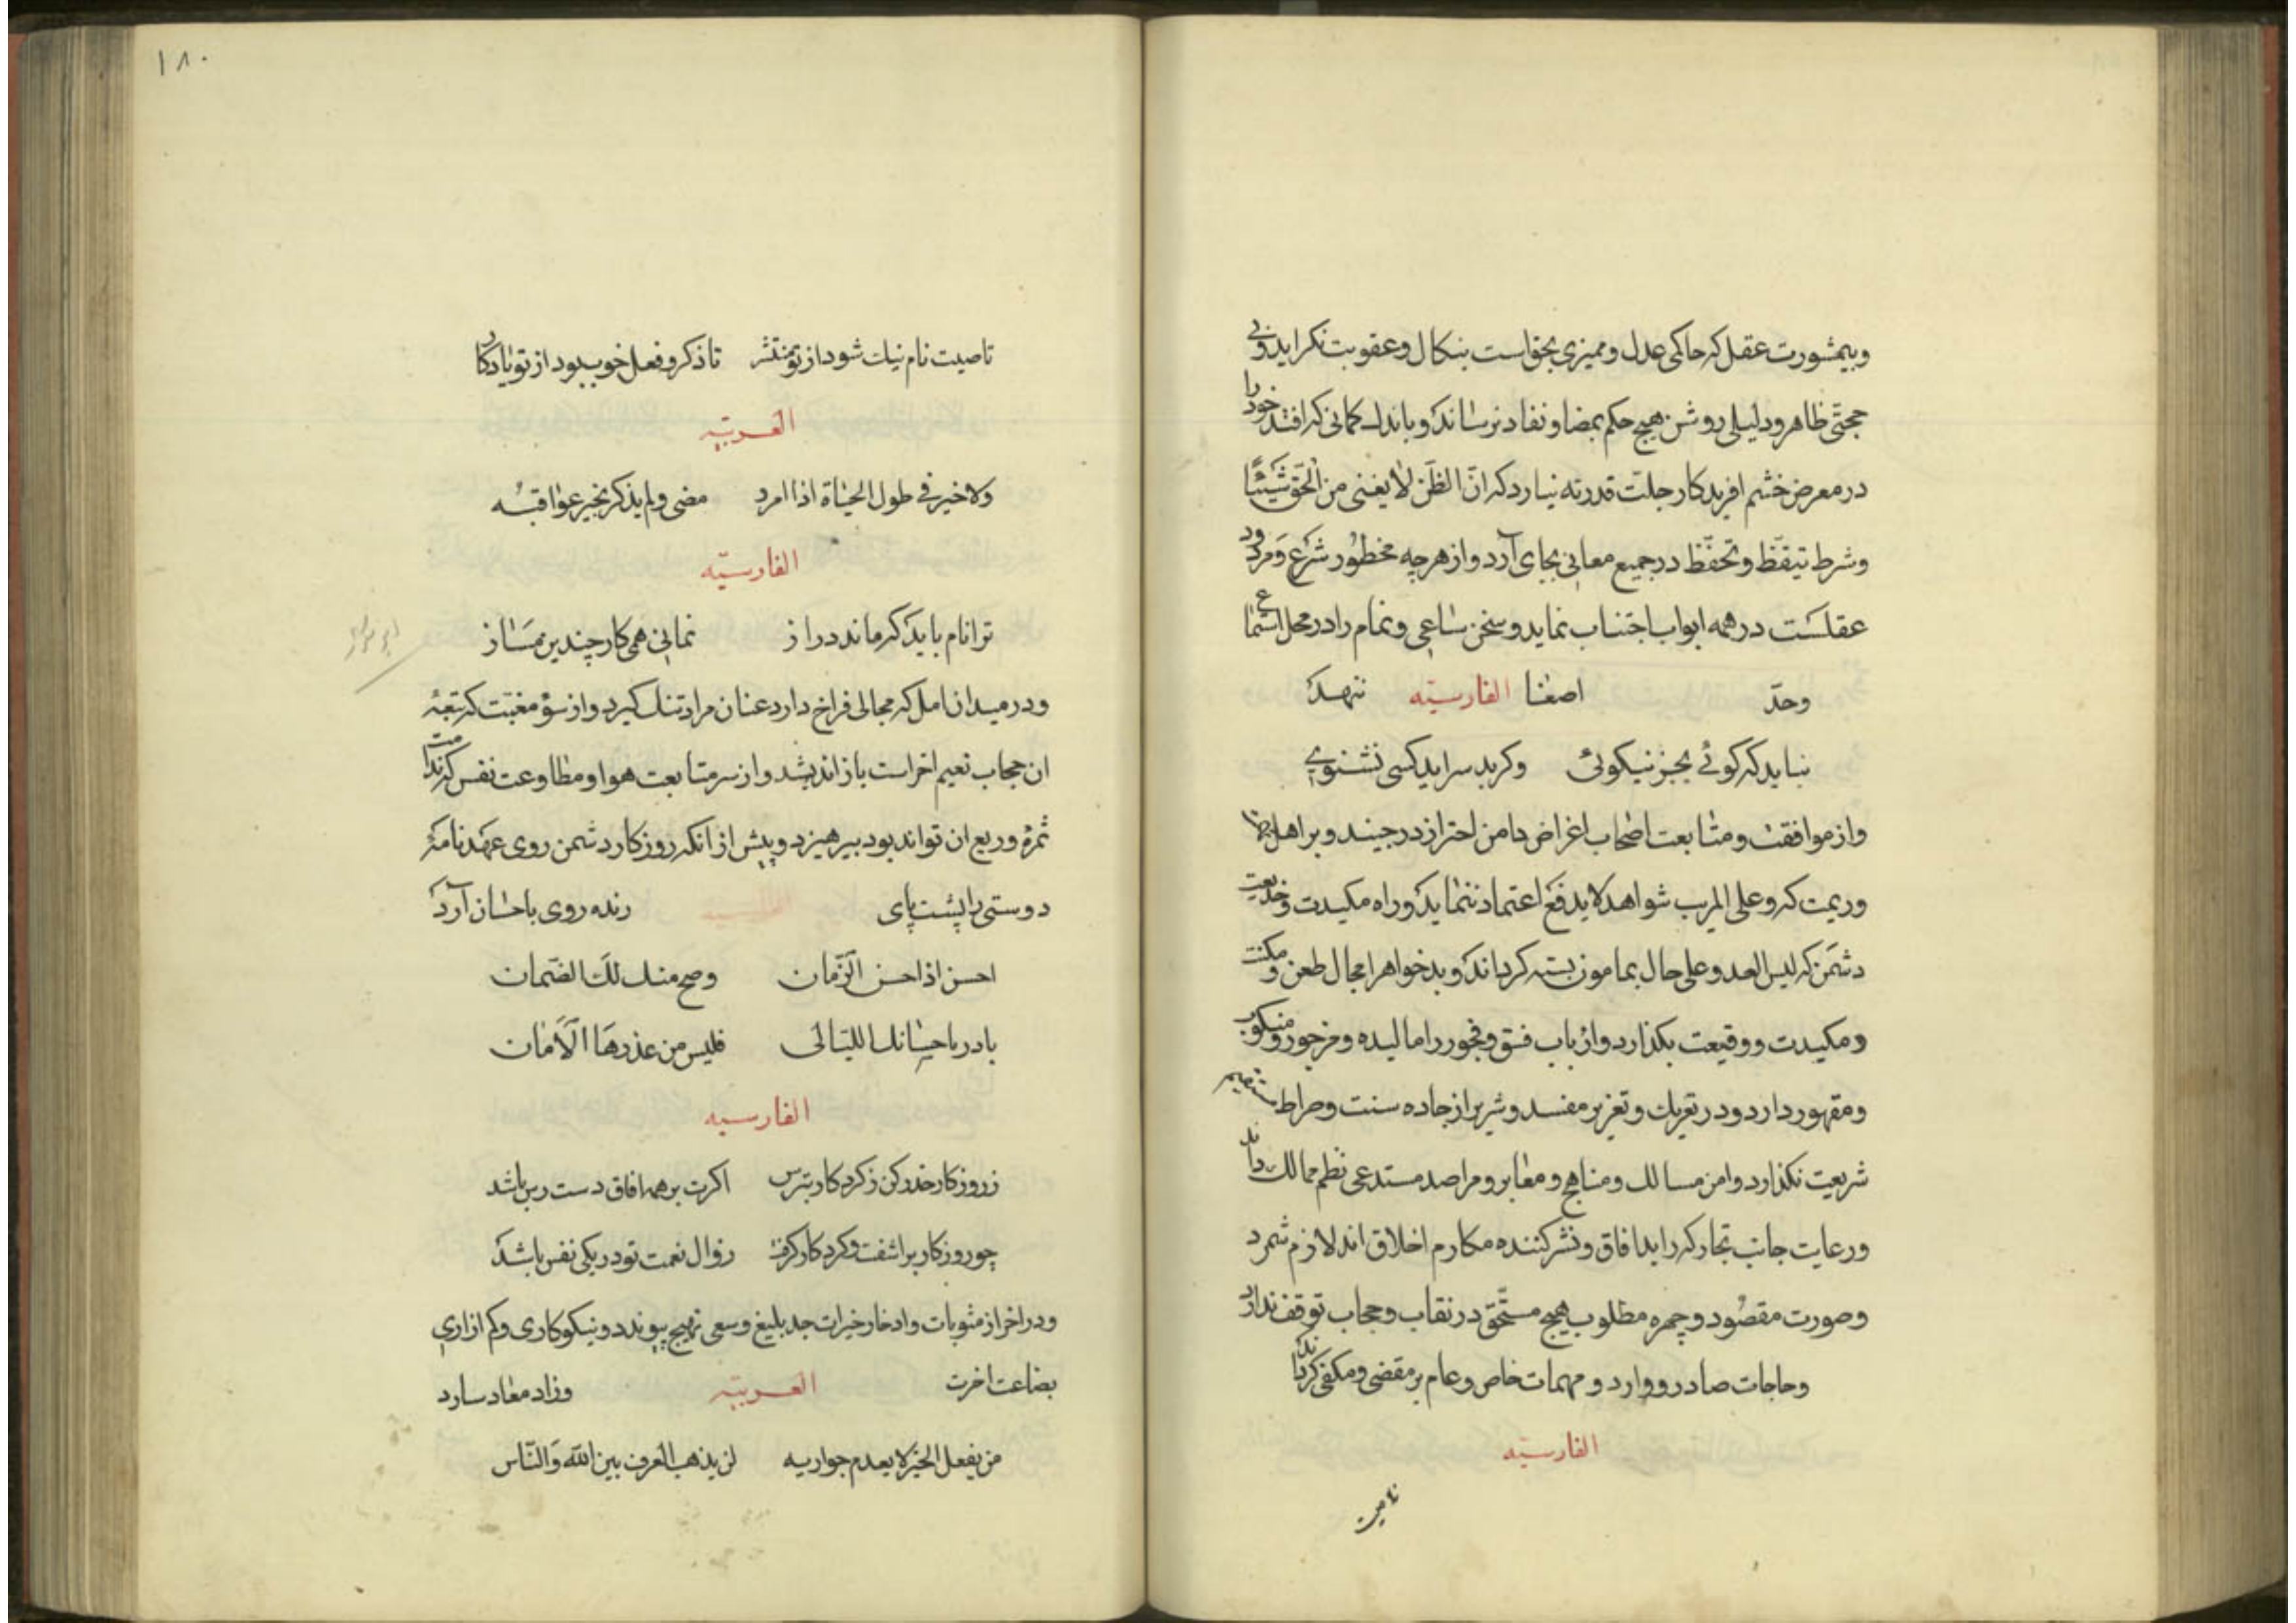 وبیمشورت عقل که حاکمی عدل و ممیزی بحق است بنکال و عقوبت نکراید و بی
حجتی ظاهر و دلیلی روشن هیچ حکم بمضا و نفاد نرساند و باندک کمانی که افتد خود را
در معرض خشم افریدکار جلت قدرته نیارد که انّ الظَنّ لا یغنی من الحَقّ شَیئًا
وشرط تیقّظ و تحفّظ در جمیع معانی بجای آرد و از هرچه محظور شرع و مردود
عقلست در همه ابواب اجتناب نماید و سخن ساعی و نمام را در محل استماع
وحدّ اصغا الفارسیّه ننهد
نباید که کوئی بجز نیکوئی وکر بد سراید کسی نشنوی
واز موافقت و متابعت اصحاب اغراض دامن احتراز درجیند و بر اهل
وریمت که و علی المریب شواهد لا یدفع اعتماد ننماید و راه مکیدت و خدیعت
دشمن که لیس العدو علی حال بمامون بسته کرداند و بدخواهرا مجال طعن و مکنت
ومکیدت و وقیعت بکذارد و ارباب فسق و فجور را مالیده و مزجور و منکوب
ومقهور دارد و در تعریک و تعزیر مفسد و شریر از جاده سنت و صراط مستقیم
شریعت نکذارد و امن مسالک و مناهج و معابر و مراصد مستدعی نظم ممالک داند
ورعایت جانب تجار که راید افاق و نشر کننده مکارم اخلاق اند لازم شمرد
وصورت مقصود و چهره مطلوب هیچ مستحّق در نقاب و حجاب توقف ندارد
وحاجات صادر و وارد و مهمات خاص و عام بر مقضی و مکفی کرداند
الفارسیّه
تا صیت
۱۸۰
تا صیت نام نیک شود از تو منتشر تا ذکر و فعل خوب بود از تو یادکار
العربیّه
ولا خیر فی طول الحیاة اذا امرد مضی ولم یذکر بخیر عواقبه
الفارسیّه
ترا نام باید که ماند دراز نمانی همی کار چندین مساز
ودر میدان امل که مجالی فراخ دارد عنان مراد تنک کیرد و از سؤ مغبت که تبعهٔ
ان حجاب نعیم اخراست باز اندیشد و از سر متابعت هوا و مطاوعت نفس که ندامت
ثمرهٔ و ریع ان تواند بود بپرهیزد و پیش از انکه روزکار دشمن روی عهدنامهٔ
دوستی را پشت پای زنده روی باحسان آرد
احسن اذا احسن الزّمان وصح منک لک الضّمان
بادر باحسانک اللیالی فلیس من عذرها الأمان
الفارسیه
زروزکار حذر کن زکردکار بترس اکرت بر همه افاق دست رس باشد
چو روزکار براشفت و کردکار کرفت زوال نعمت تو در یکی نفس باشد
ودر اخراز مثوبات و ادخار خیرات جد بلیغ و سعی نهیج پیوندد و نیکوکاری و کم ازاری
بضاعت اخرت العربیّه وزاد معاد سازد
من یفعل الخیر لا یعدم جوازیه لن یذهب العرف بین الله والنّاس